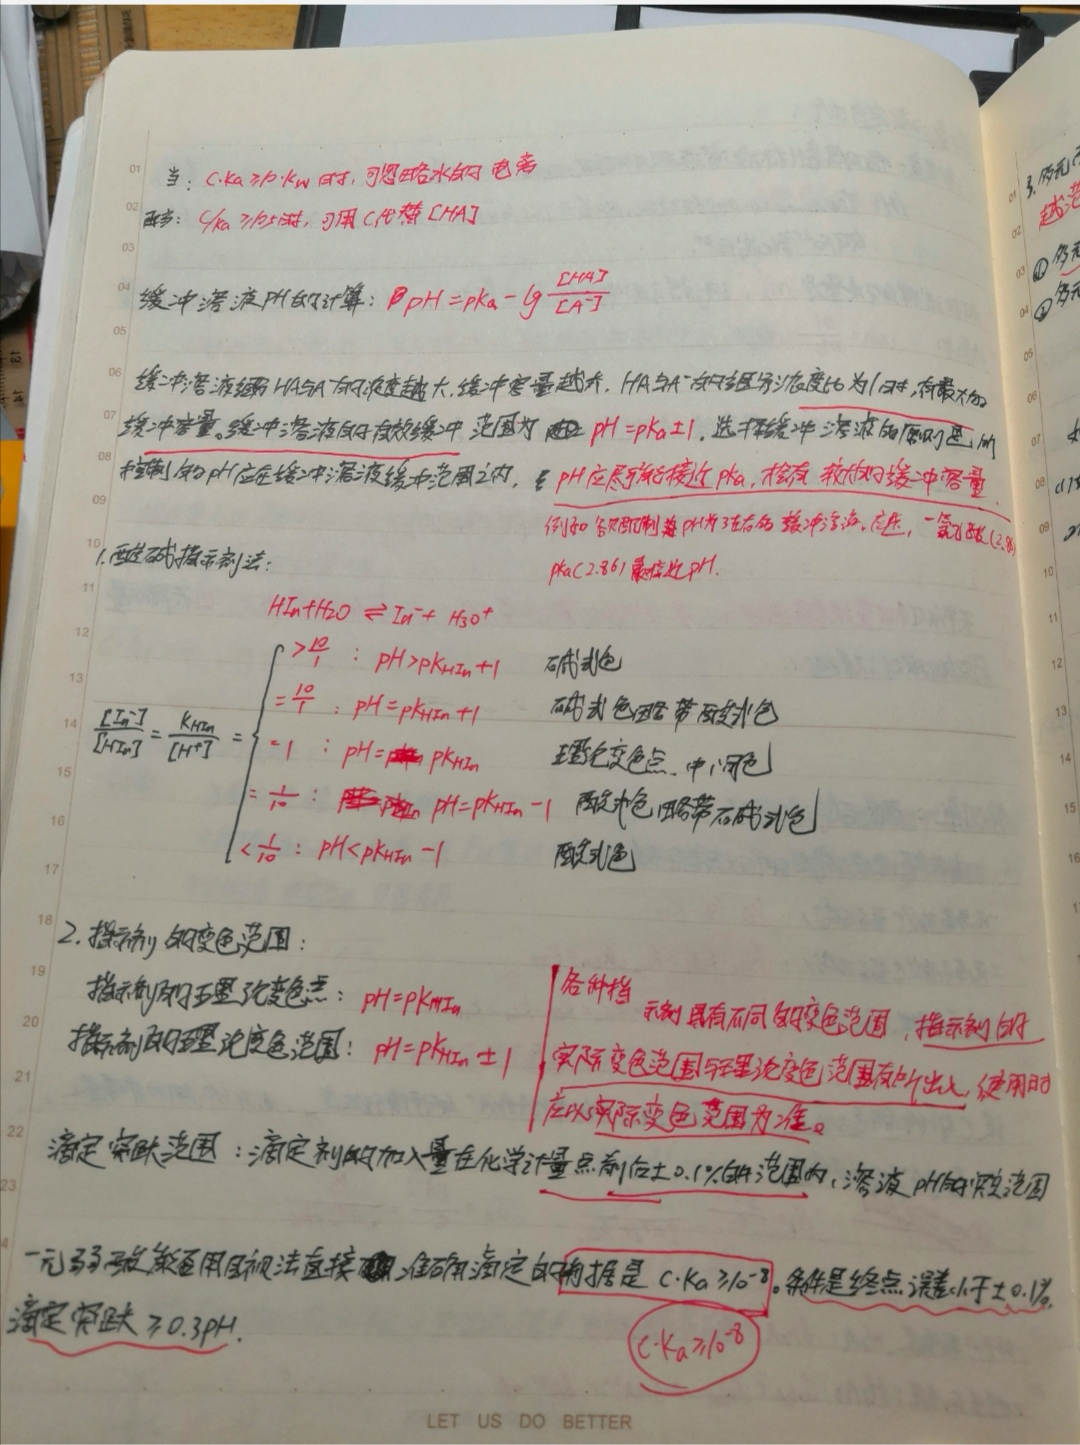 当: C·Ka≥10·Kw时, 可忽略水的电离
或当: C/Ka≥105时, 可用C代替[HA]
缓冲溶液PH的计算: pH=pKa-lg [HA]/[A⁻]
缓冲溶液 HA与A⁻的浓度越大,缓冲容量越大. HA与A⁻的 浓度比为1时,有最大的
缓冲容量。缓冲溶液的有效缓冲 范围为 pH=pKa±1. 选择缓冲溶液的原则是, 所
控制的pH应在缓冲溶液缓冲范围之内, pH应尽可能接近pKa, 较大的缓冲容量
例如 pH为3左右的缓冲溶液, 一氯乙酸(2.86)
pKa(2.86)最接近pH.
1.酸碱指示剂法:
HIn+H2O ⇌ In⁻+ H3O⁺
>10/1 : pH>pKHIn+1 碱式色
=10/1 : pH=pKHIn+1 碱式色略带酸式色
[In⁻]/[HIn]=KHIn/[H⁺]= =1 : pH= pKHIn 理论变色点、中间色
=1/10 : pH=pKHIn-1 酸式色略带碱式色
<1/10 : pH<pKHIn-1 酸式色
2.指示剂的变色范围:
指示剂的理论变色点: pH=pKHIn
指示剂的理论变色范围: pH=pKHIn±1
各种指
示剂具有不同的变色范围, 指示剂的
实际变色范围与理论变色范围有所出入, 使用时
应以实际变色范围为准。
滴定突跃范围:滴定剂的加入量在化学计量点前后±0.1%的范围内,溶液pH的突变范围
一元弱酸能否用目视法直接准确滴定的判据是 C·Ka≥10⁻⁸。条件是终点误差小于±0.1%,
滴定突跃≥0.3pH.
C·Ka≥10⁻⁸
LET US DO BETTER
01
02
03
04
05
06
07
08
09
10
11
12
13
14
15
16
17
18
19
20
21
22
23